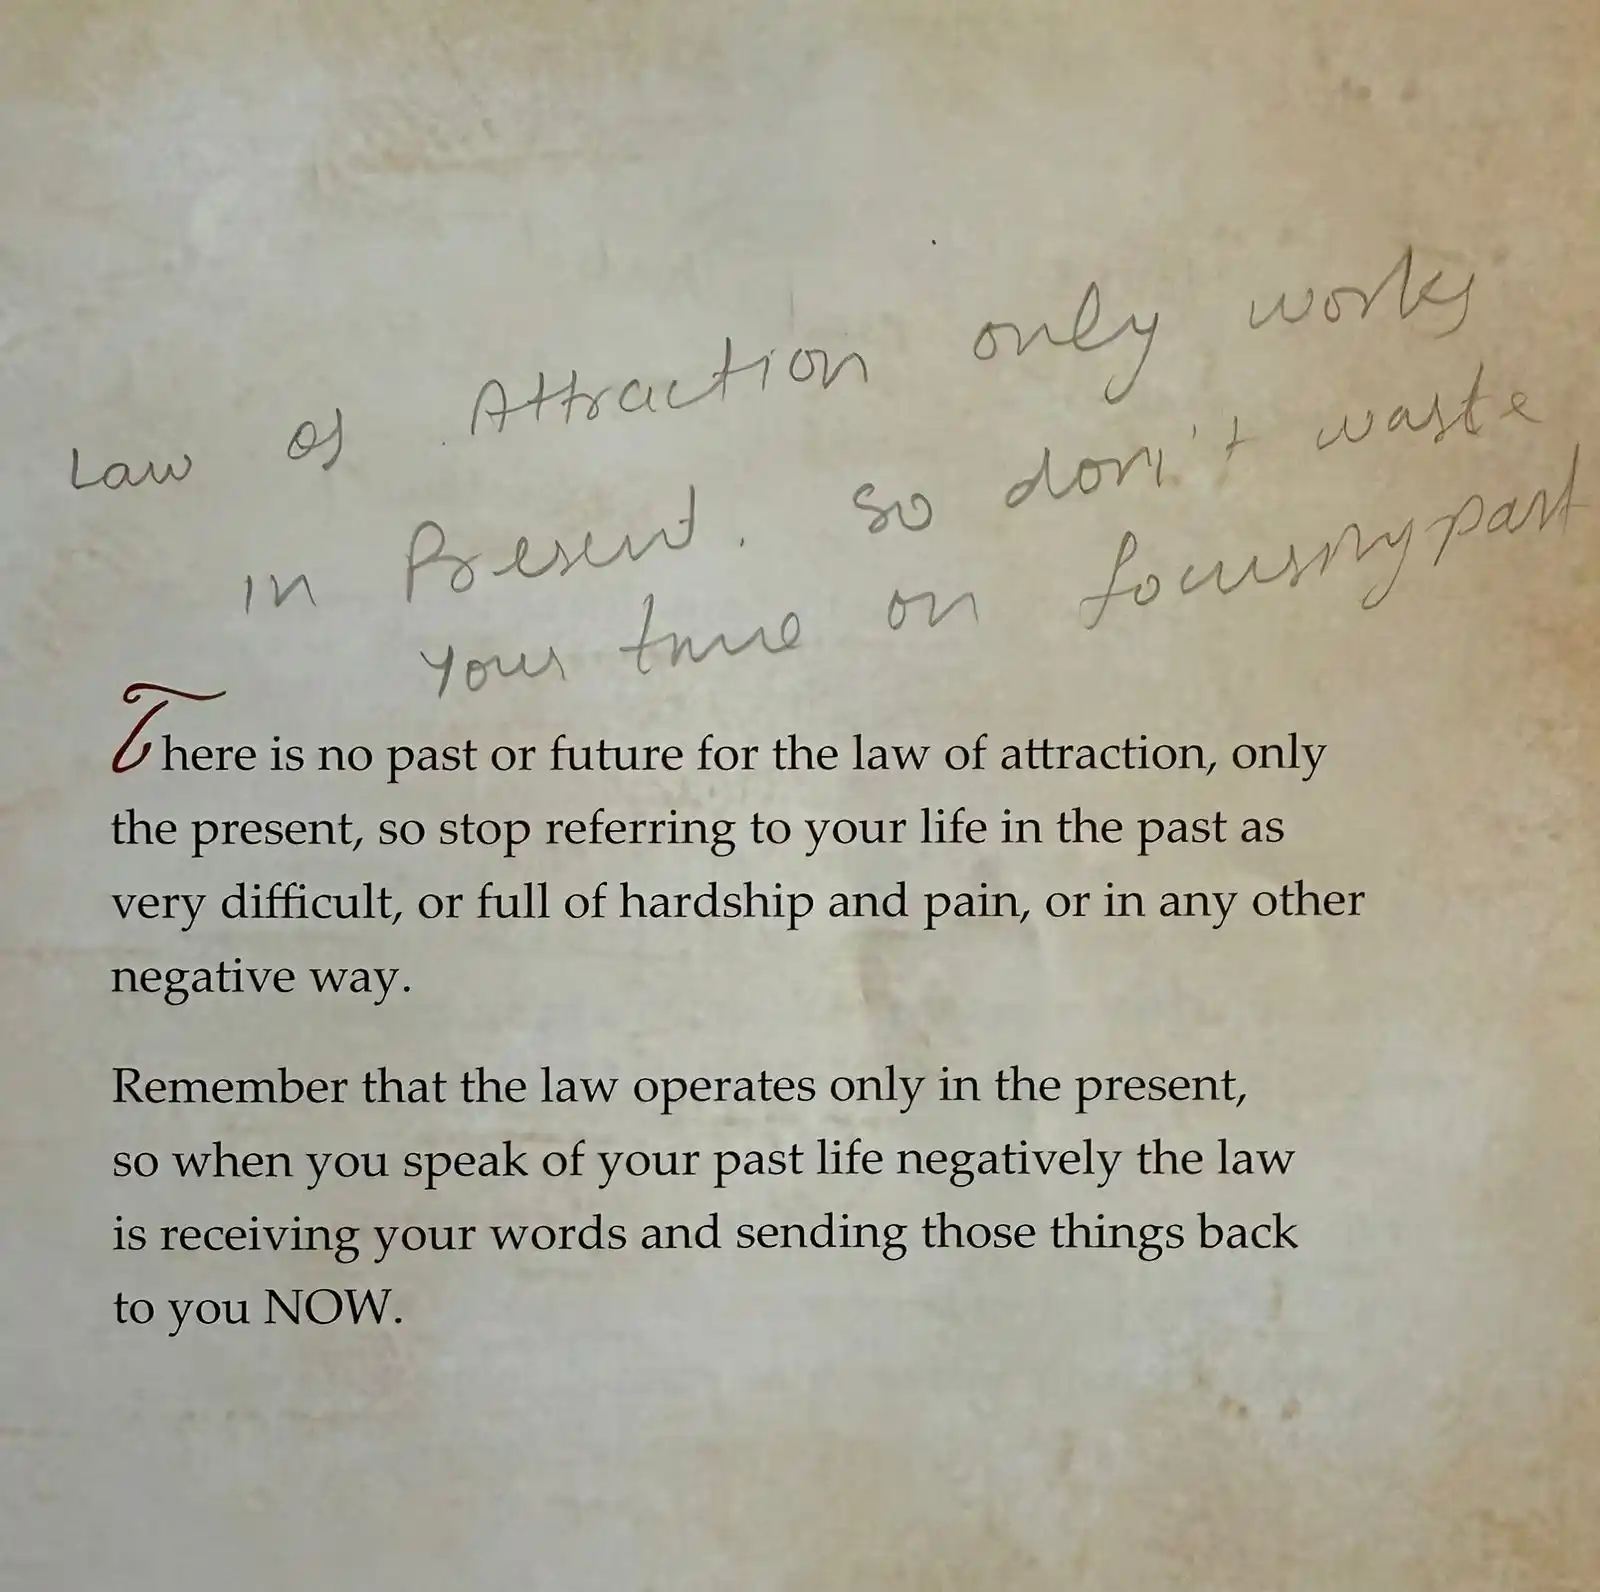 Law of Attraction only works
in Present. So don't waste
your time on focusing past
There is no past or future for the law of attraction, only
the present, so stop referring to your life in the past as
very difficult, or full of hardship and pain, or in any other
negative way.
Remember that the law operates only in the present,
so when you speak of your past life negatively the law
is receiving your words and sending those things back
to you NOW.